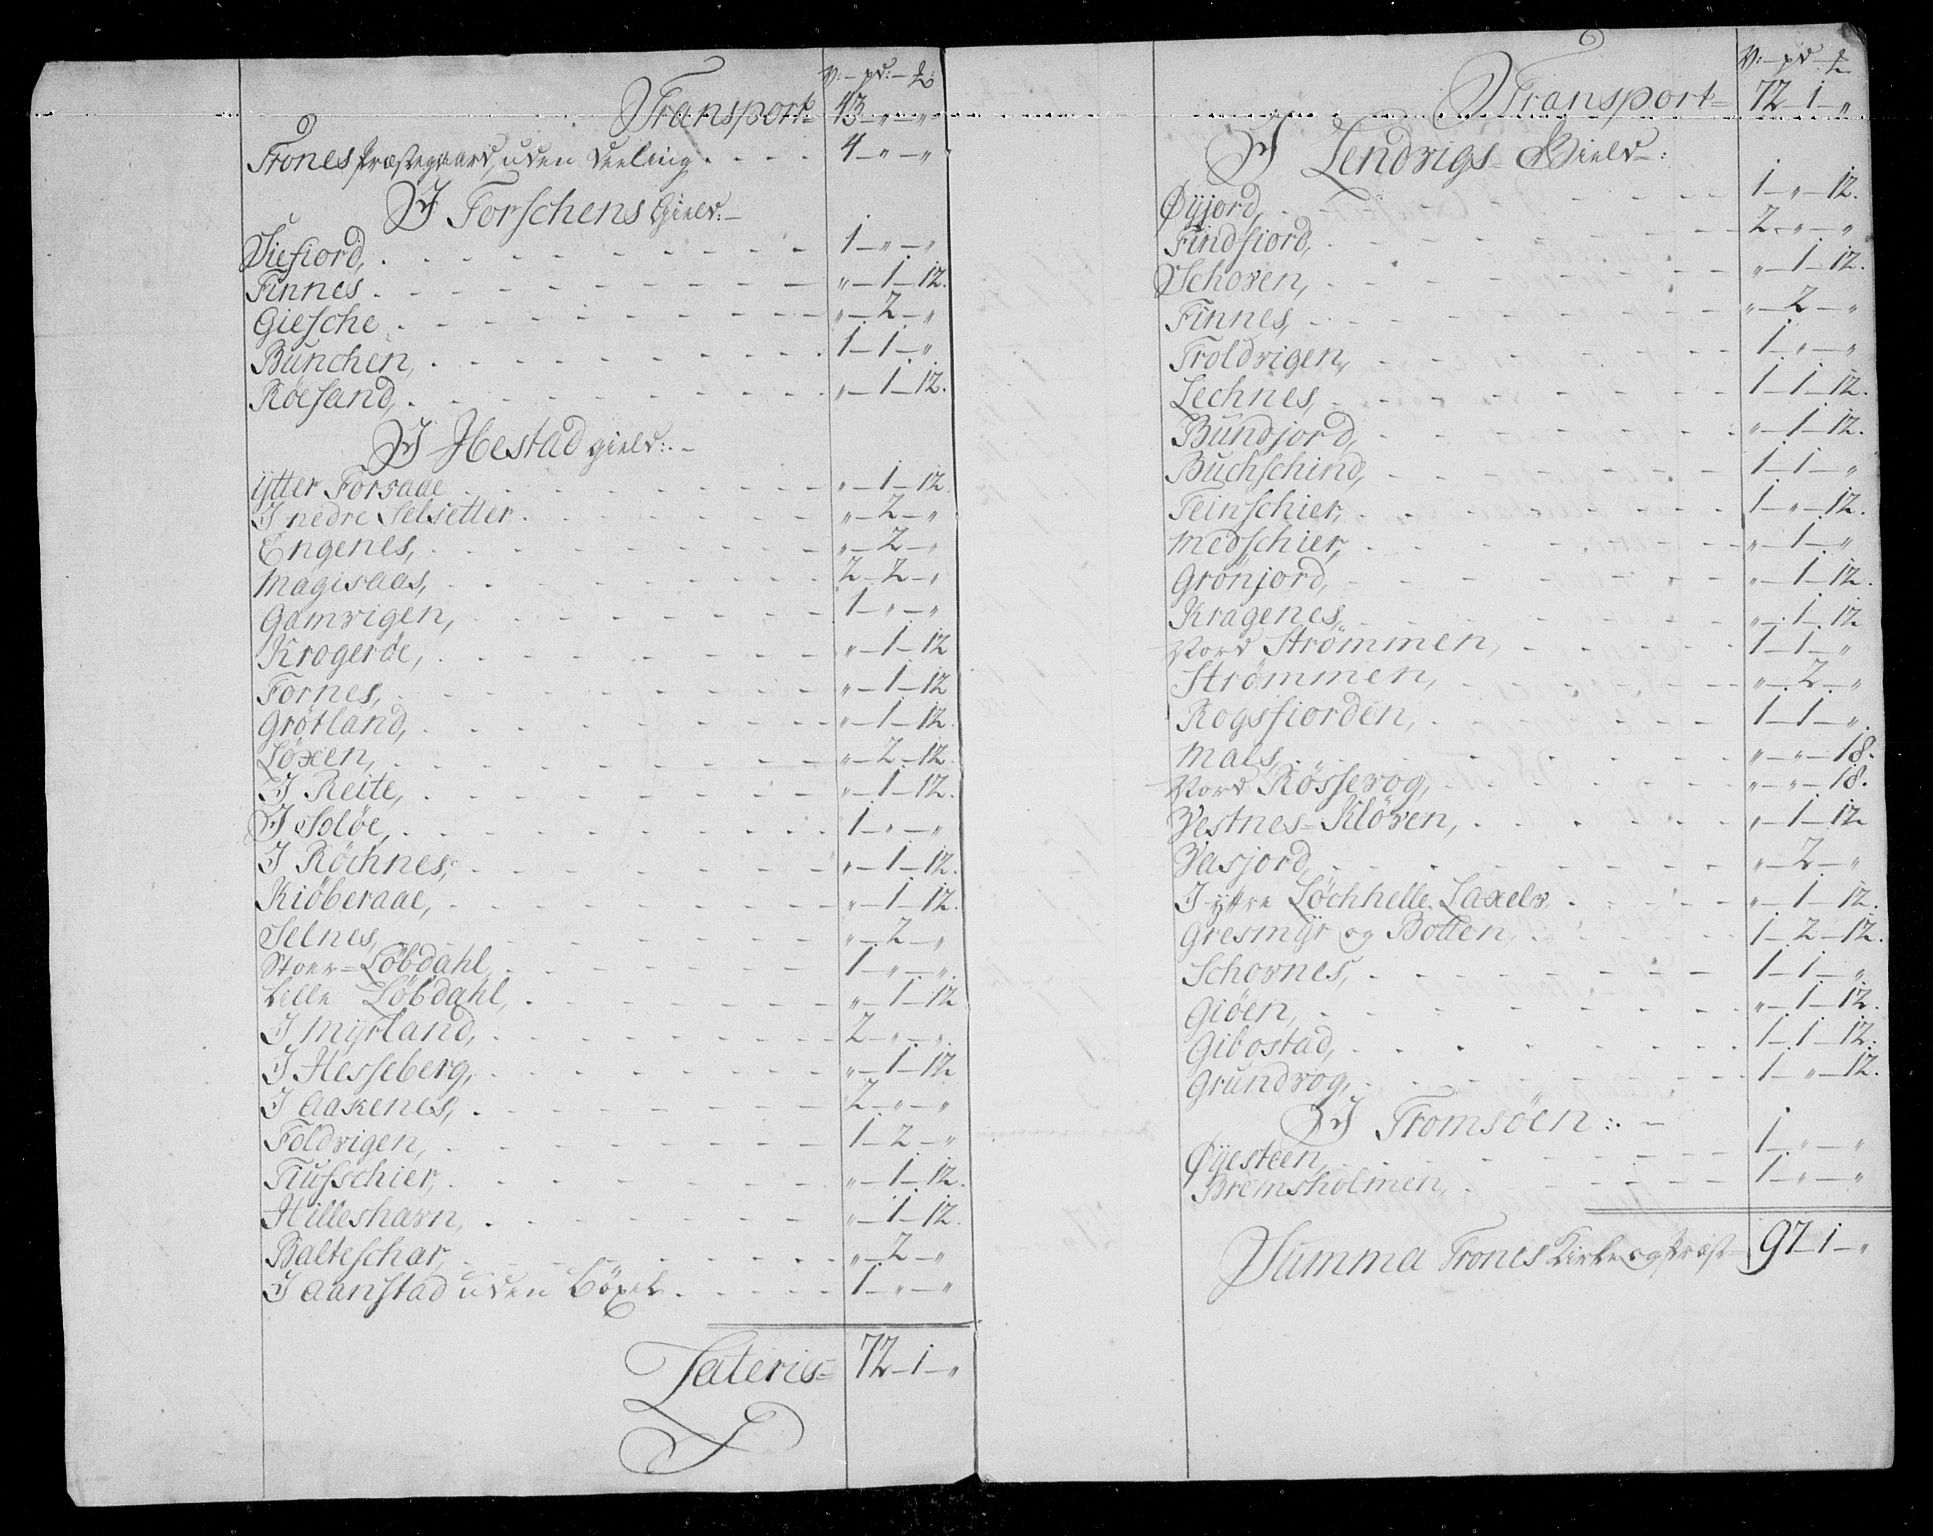 V: — pd: — ℔:
Transport= 43 — " — "
Trones Præstegaard, uden deeling . . . . 4 — " — "
I Torschens Gield: —
Siefiord, . 1 — " — "
Finnes . 1 — 12.
Giesche . " — 2 — "
Bunchen, . 1 — 1 — "
Røesand, . " — 1 — 12.
I Ibestad gield: . —
ÿtter Forsaae " — 1 — 12.
I nedre Selsetter . " — 2 — "
Engenes, . " — 2 — "
Magisaas, . 2 — 2 — "
Gamvigen, 1 — " — "
Kragerøe, . " — 1 — 12
Fornes, . " — 1 — 12
Grøtland, . " — 1 — 12.
Løxen, . " — 2 — 12.
I Reite, . " — 1 — 12.
I Soløe, . 1 — " — "
I Røchnes, " — 1 — 12.
Kiøberaae, " — 1 — 12.
Selnes, " — 2 — "
Stoer = Løbdahl, 1 — " — "
Lille Løbdahl, . " — 1 — 12
I Mÿrland, 2 — " — "
I Hesseberg, " — 1 — 12
I Aakenes, . 2 — " — "
Foldvigen, 1 — 2 — "
Tiusschier, " — 1 — 12.
Hilleshavn, . " — 1 — 12.
Balteschar, " — 2 — "
I Aanstad uden Böxel . 1 — " — "
Lateris = 72 — 1 — "
V: — pd — ℔
Transport = 72 — 1 — "
I Lendvigs = Gield — :
Øÿjord, 1 — " — 12.
Findfiord, . 2 — " — "
Schoven, " — 1 — 12.
Finnes, " — 2 — "
Troldvigen, 1 — " — "
Lechnes, 1 — 1 — 12.
Bundjord, " — 1 — 12.
Buchschind, 1 — 1 — "
Teinschier, 1 — " — 12.
Medschier, " — 1 — "
Grønjord, " — 1 — 12.
Kragenes, " — 1 — 12
Nord Strömmen, 1 — 1 — "
Strømmen, " — 2 — "
Rogsfiorden, 1 — 1 — "
Mals, " — " — 18.
Nord Røssevog, " — " — 18.
Vestnes = Kløven, " — 1 — 12
Vasjord, " — 2 — "
I ÿttre Løchhelle Laxelv " — 1 — 12.
Gresmÿr og Botten, 1 — 2 — 12.
Schovnes, 1 — 1 — "
Giøen, " — 1 — 12.
Gibostad, 1 — 1 — 12.
Grundvog, 1 — " — 12.
I Tromsøen : . —
Øÿesteen, 1 — " — "
Bremsholmen, 1 — " — "
Summa Trones Kirke og Præst — 97 — 1 — "